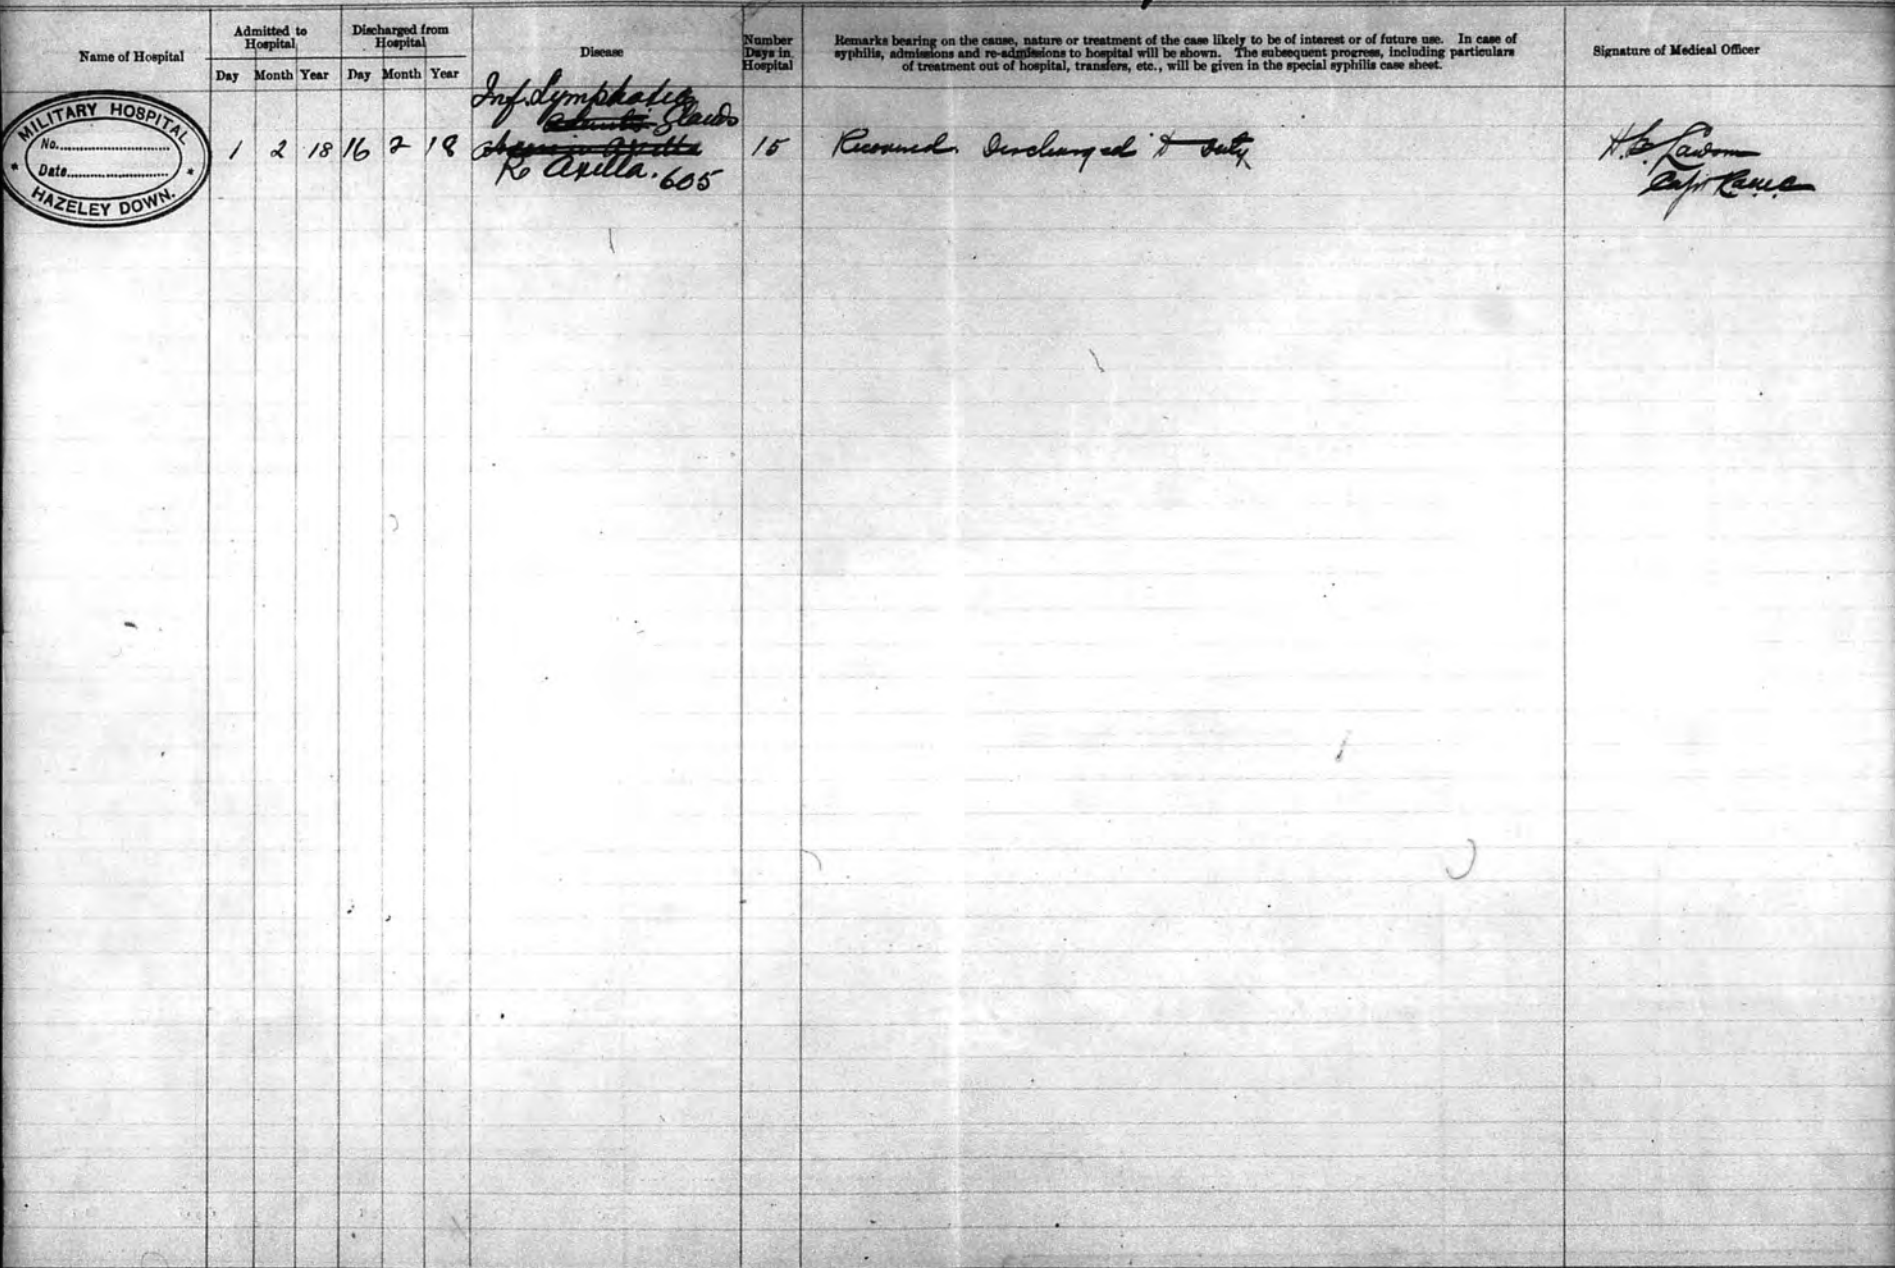 Name of Hospital
Admitted to
Hospital
Day Month Year
Discharged from
Hospital
Day Month Year
Disease
Number
Days in
Hospital
Remarks bearing on the cause, nature or treatment of the case likely to be of interest or of future use. In case of
syphilis, admissions and re-admissions to hospital will be shown. The subsequent progress, including particulars
of treatment out of hospital, transfers, etc., will be given in the special syphilis case sheet.
Signature of Medical Officer
MILITARY HOSPITAL
No.
Date
HAZELEY DOWN.
1 2 18 16 2 18
Inf. Lymphatic
Glands
R. Axilla. 605
15
Recovered. Discharged to Duty
Capt R.A.M.C.